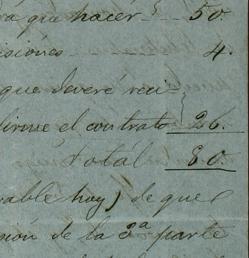 ra que hacer 50.
isiones 4.
que deveré reci
firme el contrato 26.
total 80.
able hoy) de que
sión de la 3ª parte